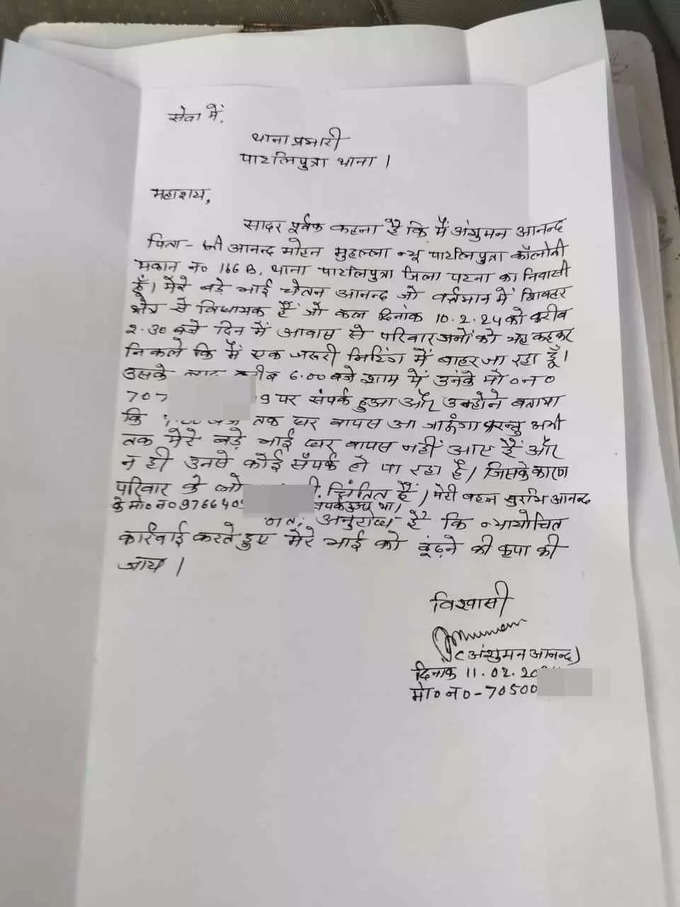 सेवा में,
थाना प्रभारी
पाटलिपुत्रा थाना।
महाशय,
सादर पूर्वक कहना है कि मैं अंशुमन आनन्द
पिता - श्री आनन्द मोहन मुहल्ला न्यू पाटलिपुत्रा कॉलोनी
मकान न० 166B, थाना पाटलिपुत्रा जिला पटना का निवासी
हूँ। मेरे बड़े भाई चेतन आनन्द जो वर्तमान में शिवहर
क्षेत्र से विधायक हैं जो कल दिनांक 10.2.24 को करीब
2.30 बजे दिन में आवास से परिवारजनों को यह कहकर
निकले कि मैं एक जरूरी मिटिंग में बाहर जा रहा हूँ।
उसके बाद करीब 6.00 बजे शाम में उनके मो०न०
707 9 पर संपर्क हुआ और उन्होने बताया
कि तक घर वापस आ जाऊंगा परन्तु अभी
तक मेरे बड़े भाई घर वापस नहीं आए हैं और
न ही उनसे कोई सँपर्क हो पा रहा है। जिसके कारण
परिवार के चिंतित हैं। मेरी बहन सुरभि आनन्द
के मो०न०9766405 संपर्क हुआ था।
अतः अनुरोध है कि न्यायोचित
कार्रवाई करते हुए मेरे भाई को ढूंढ़ने की कृपा की
जाय।
विश्वासी
(अंशुमन आनन्द)
दिनांक 11.02.2024
मो०न०-70500